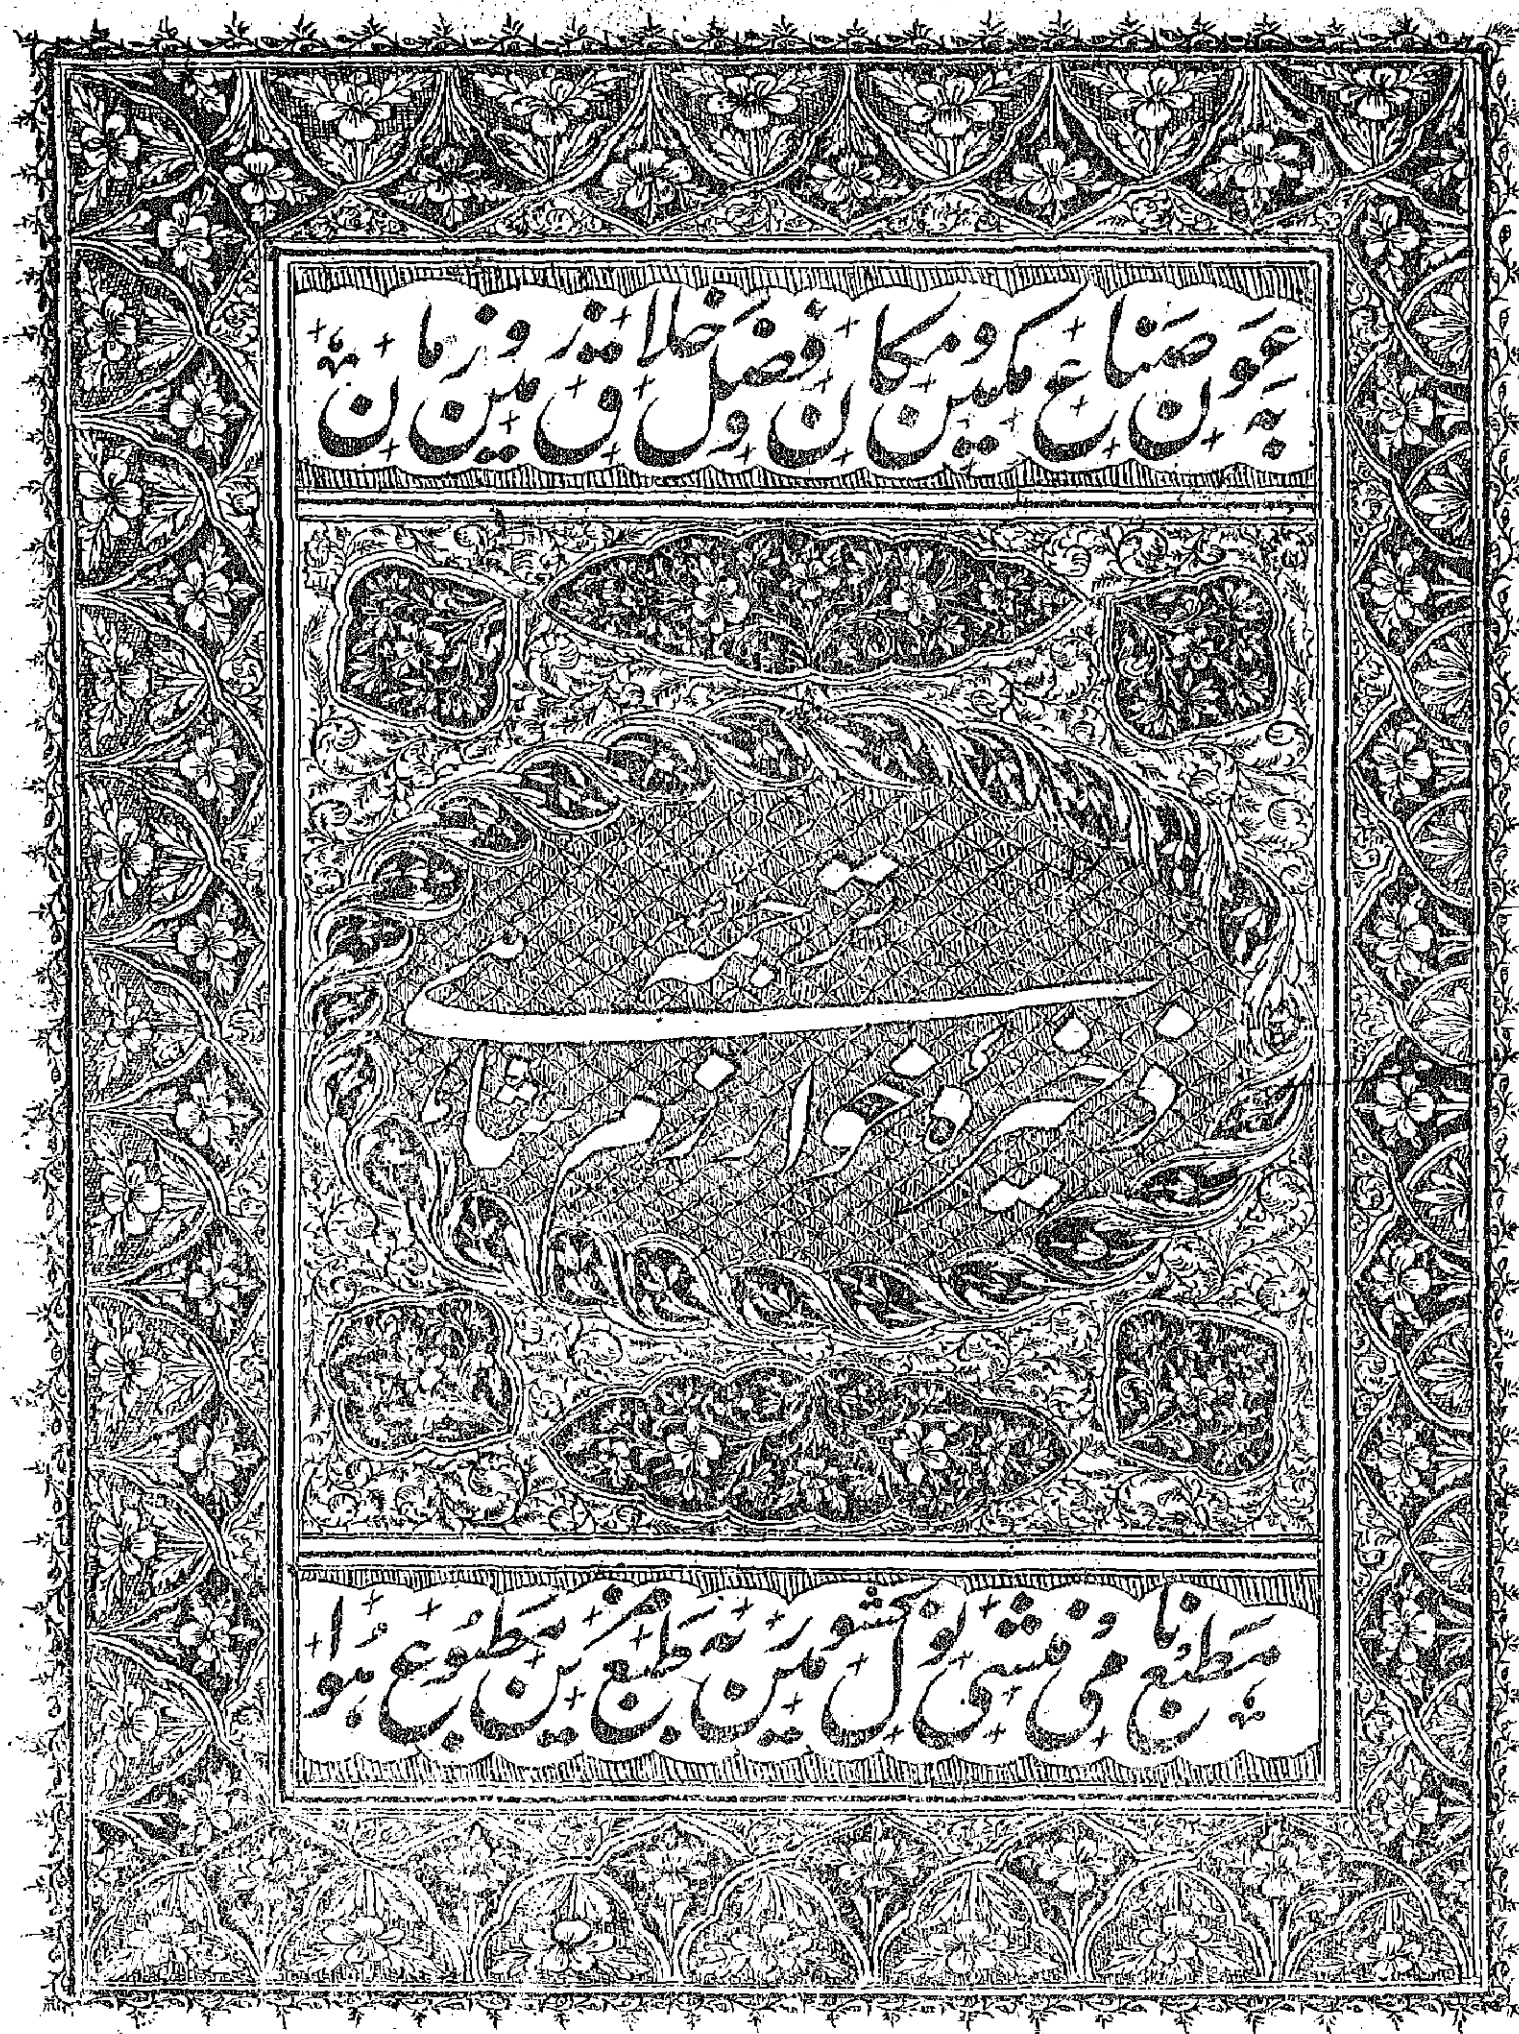 بعون صناع مکین و مکان و فضل خلاق زمین و زمان
ترجمہ
ذخیرہ خوارزم شاہی
مطبع نامی منشی نولکشور مین طبع مزین مطبوع ہوا